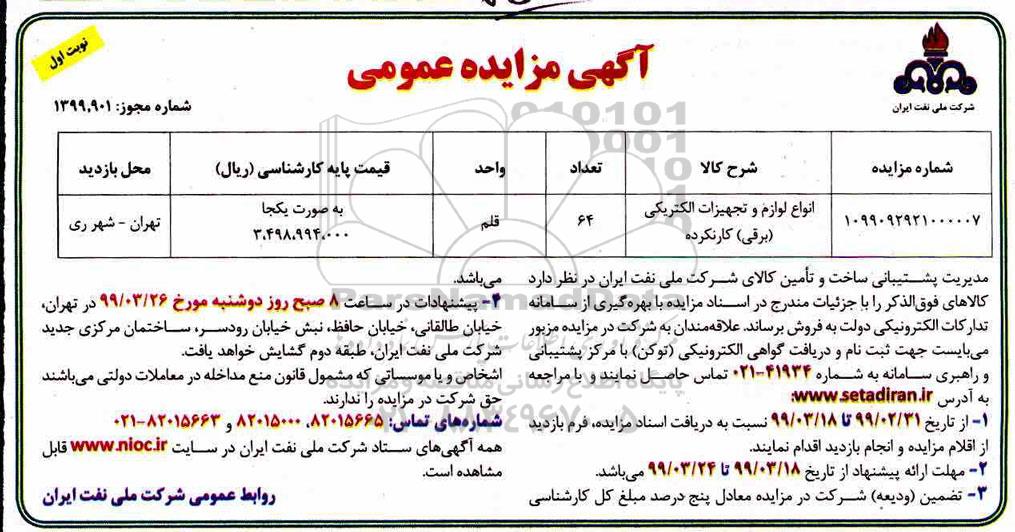 نوبت اول
آگهی مزایده عمومی
شرکت ملی نفت ایران
شماره مجوز: ۱۳۹۹،۹۰۱
شماره مزایده شرح کالا تعداد واحد قیمت پایه کارشناسی (ریال) محل بازدید
۱۰۹۹۰۹۲۹۲۱۰۰۰۰۰۷ انواع لوازم و تجهیزات الکتریکی (برقی) کارنکرده ۶۴ قلم به صورت یکجا ۳،۴۹۸،۹۹۴،۰۰۰ تهران - شهر ری
مدیریت پشتیبانی ساخت و تأمین کالای شرکت ملی نفت ایران در نظر دارد
کالاهای فوق‌الذکر را با جزئیات مندرج در اسناد مزایده با بهره‌گیری از سامانه
تدارکات الکترونیکی دولت به فروش برساند. علاقه‌مندان به شرکت در مزایده مزبور
می‌بایست جهت ثبت نام و دریافت گواهی الکترونیکی (توکن) با مرکز پشتیبانی
و راهبری سامانه به شماره ۴۱۹۳۴-۰۲۱ تماس حاصل نمایند و با مراجعه
به آدرس www.setadiran.ir:
۱- از تاریخ ۹۹/۰۲/۳۱ تا ۹۹/۰۳/۱۸ نسبت به دریافت اسناد مزایده، فرم بازدید
از اقلام مزایده و انجام بازدید اقدام نمایند.
۲- مهلت ارائه پیشنهاد از تاریخ ۹۹/۰۳/۱۸ تا ۹۹/۰۳/۲۴ می‌باشد.
۳- تضمین (ودیعه) شرکت در مزایده معادل پنج درصد مبلغ کل کارشناسی
می‌باشد.
۴- پیشنهادات در ساعت ۸ صبح روز دوشنبه مورخ ۹۹/۰۳/۲۶ در تهران،
خیابان طالقانی، خیابان حافظ، نبش خیابان رودسر، ساختمان مرکزی جدید
شرکت ملی نفت ایران، طبقه دوم گشایش خواهد یافت.
اشخاص و یا موسساتی که مشمول قانون منع مداخله در معاملات دولتی می‌باشند
حق شرکت در مزایده را ندارند.
شماره‌های تماس: ۸۲۰۱۵۶۶۵، ۸۲۰۱۵۰۰۰ و ۸۲۰۱۵۶۶۳-۰۲۱
همه آگهی‌های ستاد شرکت ملی نفت ایران در سایت www.nioc.ir قابل
مشاهده است.
روابط عمومی شرکت ملی نفت ایران
پایگاه اطلاع رسانی مناقصه و مزایده
۰۲۱-۸۸۳۴۹۶۷۰-۵